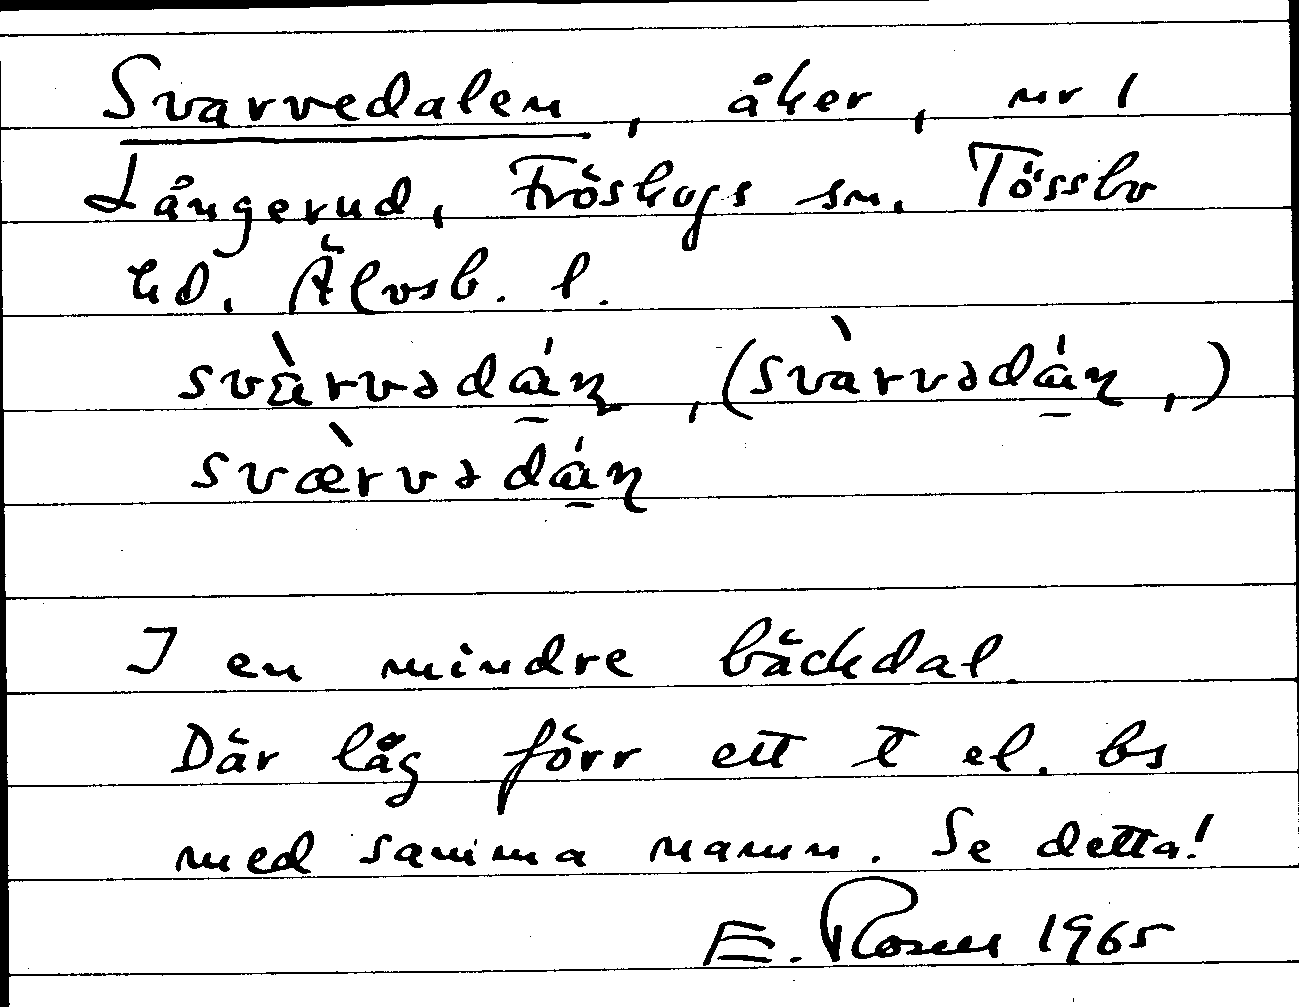 Svarvedalen, åker, nr 1
Långerud, Fröskogs sn. Tössbo
hd. Älvsb. l.
svὰrvədά̠ɳ, (svàrvədά̠ɳ,)
svæ̀rvədά̠ɳ
I en mindre bäckdal.
Där låg förr ett t el. bs
med samma namn. Se detta!
E. Rosell 1965